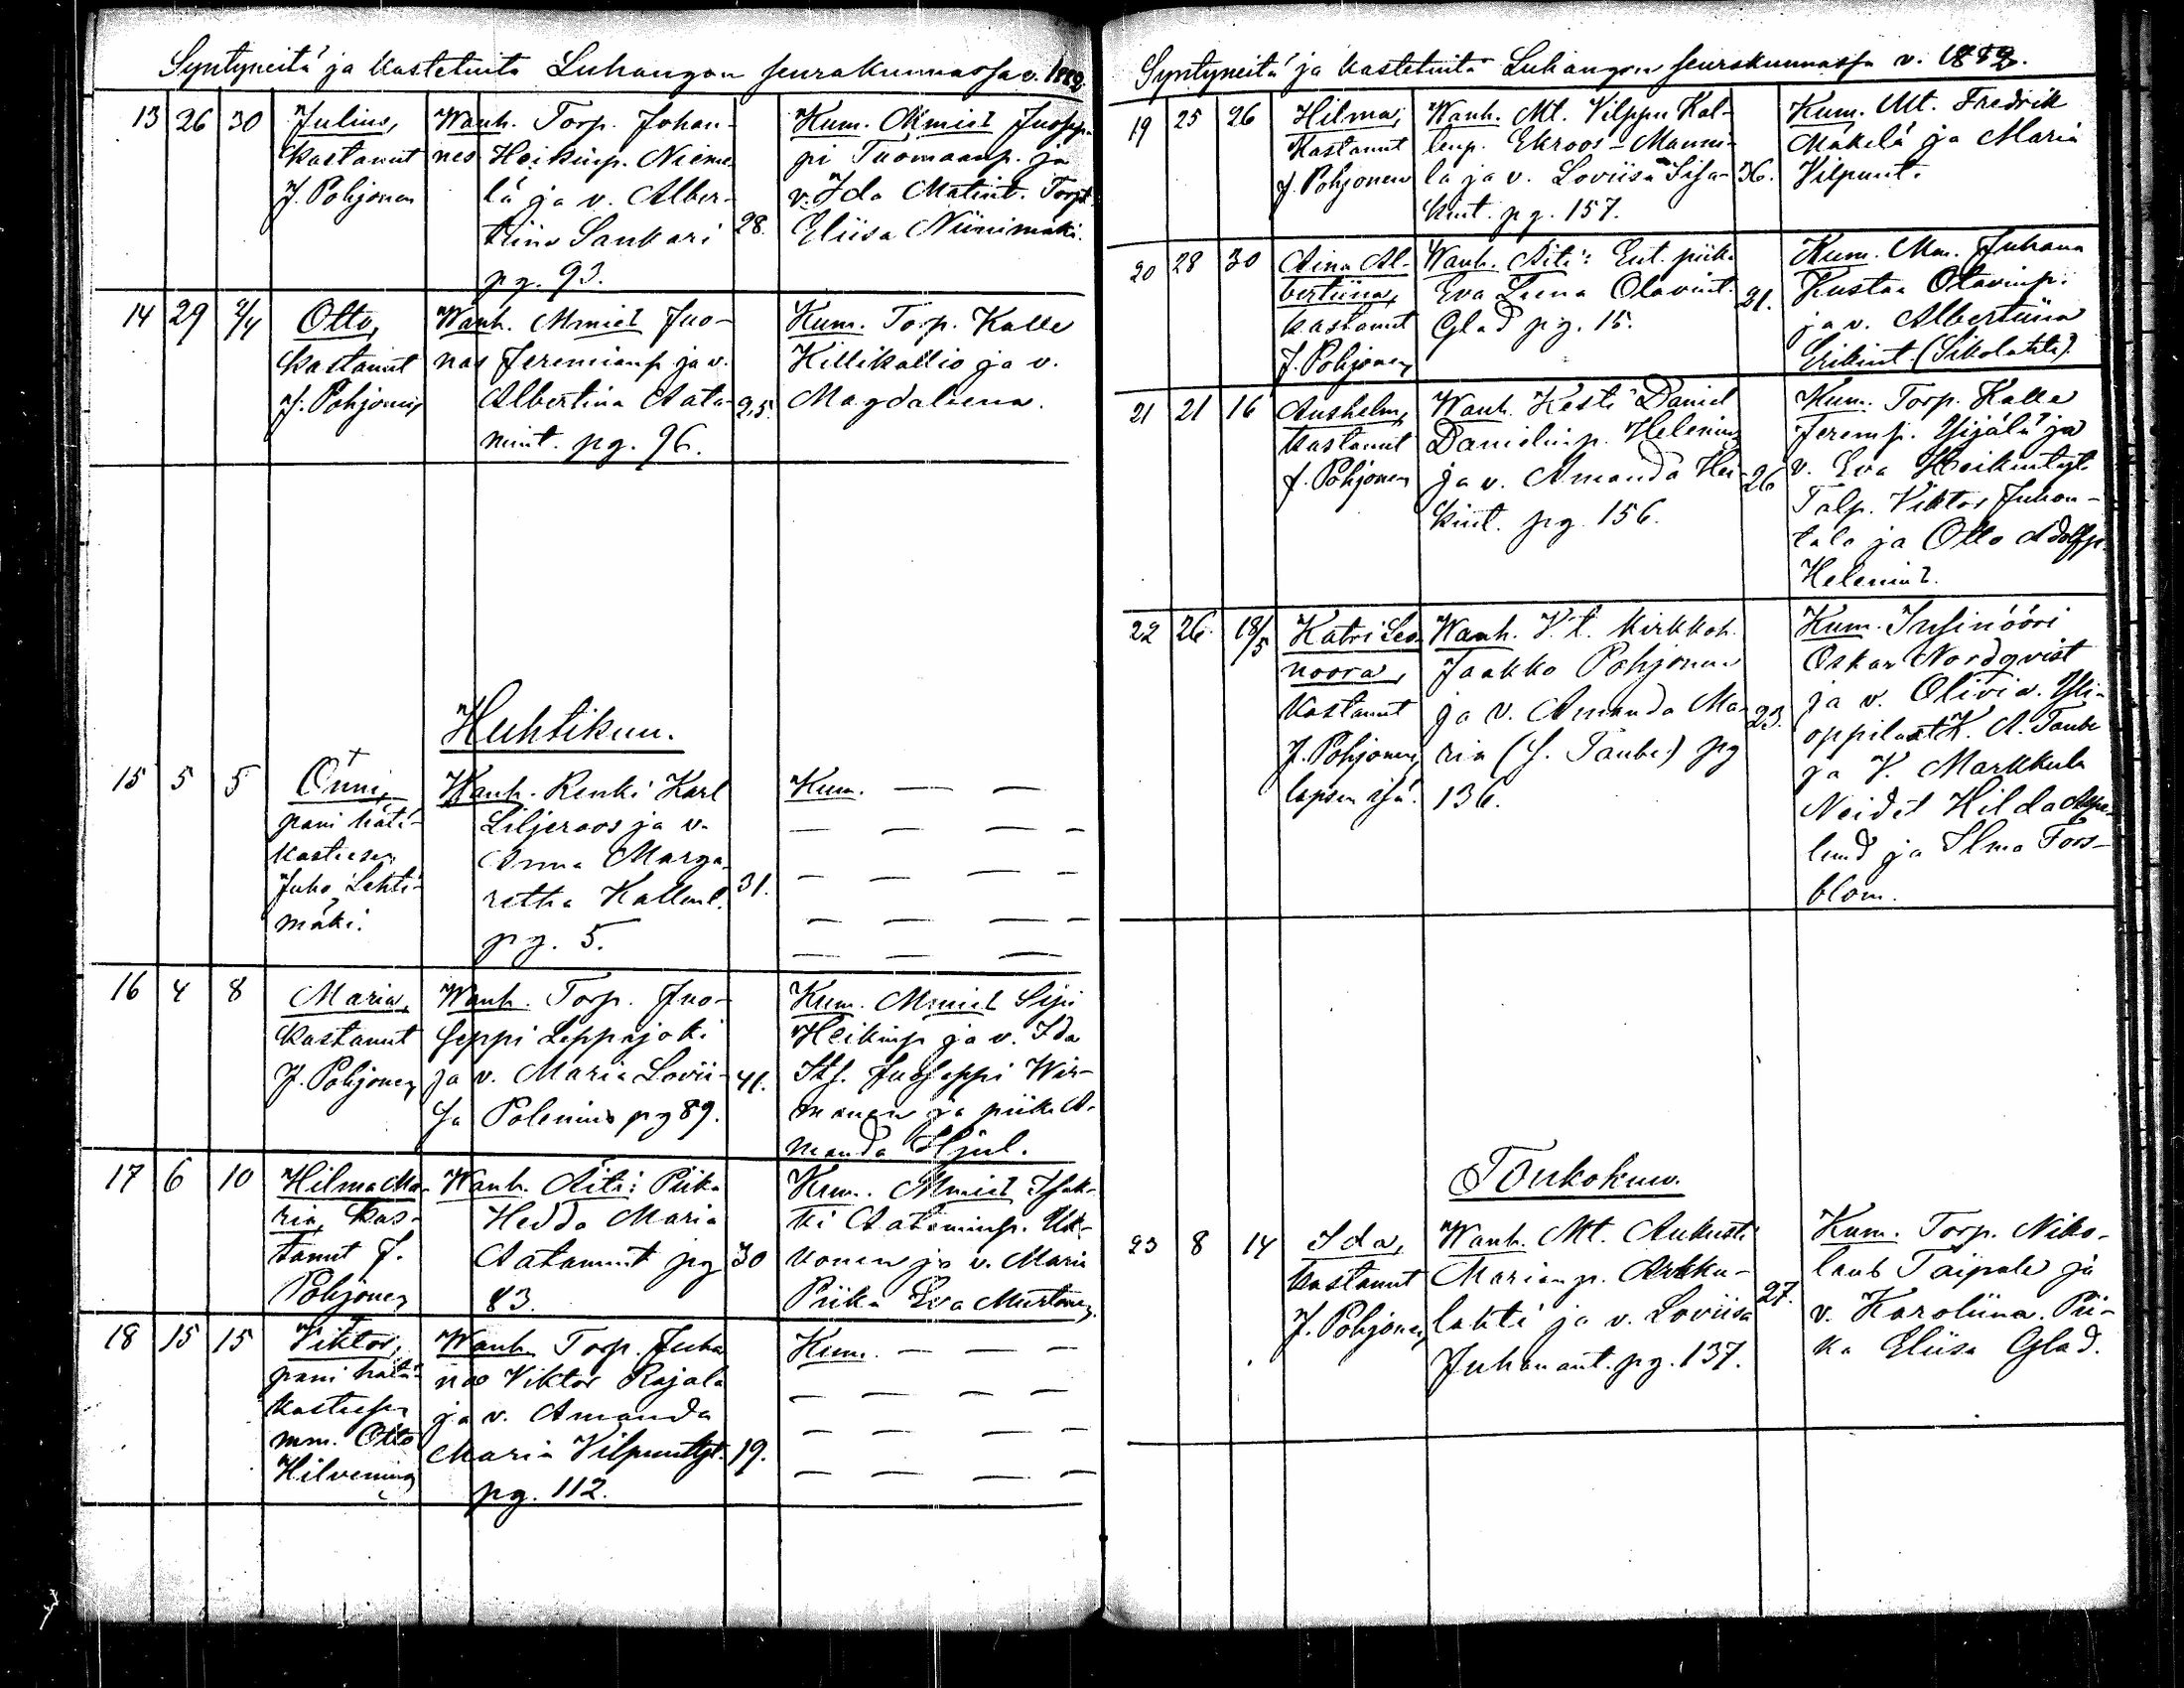 Syntyneitä ja kastetuita Luhangon seurakunnassa v. 1882.
13 26 30
Julius,
kastanut
J. Pohjonen
Wanh. Torp. Johan-
nes Heikinp. Nieme-
lä ja v. Alber-
tiina Sankari
pg. 93.
28.
Kum. Mmiel Juosep-
pi Tuomaanp. ja
v. Ida Matint. Torpt.
Eliisa Niinimäki.
14 29 2/4
Otto,
kastanut
J. Pohjonen
Wanh. Mmiel Juo-
nas Jeremianp. ja v.
Albertina Aata-
mint. pg. 96.
25.
Kum. Torp. Kalle
Killikallio ja v.
Magdaleena.
Huhtikuu.
15 5 5
†
Onni,
pani hätä-
kasteesen
Juho Lehti-
mäki.
Wanh. Renki Karl
Liljeroos ja v.
Anna Marga-
retha Kallent.
pg. 5.
31.
Kum. — —
16 4 8
Maria,
kastanut
J. Pohjonen
Wanh. Torp. Juo-
seppi Leppäjoki
ja v. Maria Lovii-
sa Polenius pg 89.
41.
Kum. Mmiel Sipi
Heikinp. ja v. Ida
Its. Juoseppi Wir-
manen ja piika A-
manda Hjul.
17 6 10
Hilma Ma-
ria, kas-
tanut J.
Pohjonen
Wanh. Äiti: Piika
Hedda Maria
Aatamint pg
83.
30
Kum. Mmiel Isak-
ki Aataminp. Uk-
konen ja v. Maria
Piika Eva Murtonen.
18 15 15
†
Viktor,
pani hätä-
kasteesen
mm. Otto
Hilvenius
Wanh. Torp. Juha
na Viktor Rajala
ja v. Amanda
Maria Vilpuntyt.
pg. 112.
19.
Kum. — — —
Syntyneitä ja kastetuita Luhangon seurakunnassa v. 1882.
19 25 26
Hilma,
kastanut
J. Pohjonen
Wanh. Mt. Vilppu Kal-
lenp. Ekroos-Manni-
la ja v. Loviisa Isa-
kint. pg. 157.
36.
Kum. Mt. Fredrik
Mäkelä ja Maria
Vilpunt.
20 28 30
Aina Al-
bertiina,
kastanut
J. Pohjonen
Wanh. Äiti: Ent. piika
Eva Leena Olavint.
Glad pg. 15.
21.
Kum. Mm. Juhana
Kustaa Olavinp.
ja v. Albertiina
Erikint. (Sikolahti).
21 21 16
Anshelm,
kastanut
J. Pohjonen
Wanh. Kesti Daniel
Danielinp. Helenius
ja v. Amanda Hei-
kint. pg. 156.
26
Kum. Torp. Kalle
Jeremp. Yijälä ja
v. Eva Heikintyt.
Talp. Viktor Juhon-
tala ja Otto Adolfp.
Helenius.
22 26. 18/5
Katri Leo-
noora,
kastanut
J. Pohjonen,
lapsen isä.
Wanh. V. t. kirkkoh.
Jaakko Pohjonen
ja v. Amanda Ma-
ria (s. Taube) pg
136.
23.
Kum. Insinööri
Oskar Nordqvist
ja v. Olivia. Yli-
oppilaat K. A. Taube
ja V. Markkula
Neidet Hilda Aspe-
lund ja Ilma Fors-
blom.
Toukokuu.
23 8 14
Ida,
kastanut
J. Pohjonen,
Wanh. Mt. Aukusti
Marianp. Arkku-
lahti ja v. Loviisa
Juhanant. pg. 137.
27.
Kum. Torp. Niko-
laus Taipale ja
v. Karoliina. Pii-
ka Eliisa Glad.